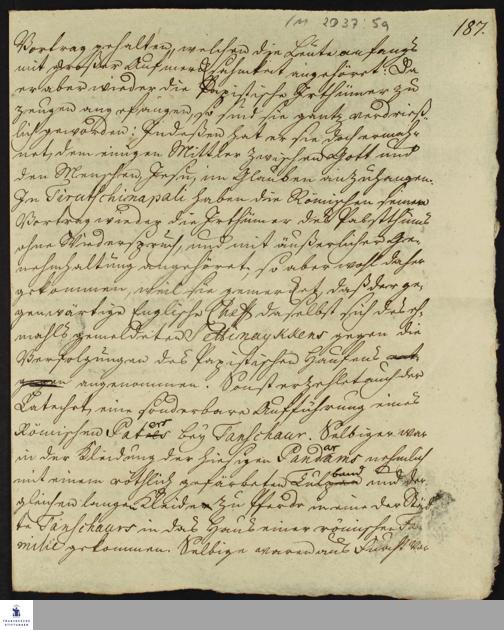 1M 2037:5a
187.
Vortrag gehalten, welchen die Leute anfangs
mit großer Aufmercksamkeit angehöret: Da
er aber wieder die Papistische Irthümer zu
zeugen angefangen, so sind sie gantz verdrieß-
lich geworden: Indeßen hat er sie doch ermah-
net, dem einigen Mittler zwischen Gott und
den Menschen, Jesu, im Glauben anzuhangen.
In Tirutschinapali haben die Römischen seinen
Vortrag wieder die Irthümer des Pabstthums
ohne Wiederspruch, und mit äußerlicher Ge-
nehmhaltung angehöret, so aber wohl daher
gekommen, weil sie gemercket, daß der ge-
genwärtige Englische Chef daselbst sich des eh-
mahls gemeldeten Tschinaykkens gegen die
Verfolgungen des Papistischen Haufens
angenommen. Sonst erzehlet auch der
Catechet, eine sonderbare Aufführung eines
Römischen Paters bey Tanschaur. Selbiger war
in der Kleidung der hiesigen Pandarams nehmlich
mit einem röthlich gefärbeten Tulband und der-
gleichen langen Kleide zu Pferde in eine der Städ-
te Tanschaurs in das Haus einer römischen Fa-
milie gekommen. Selbige waren aus Furcht vor
FRANCKESCHE
STIFTUNGEN